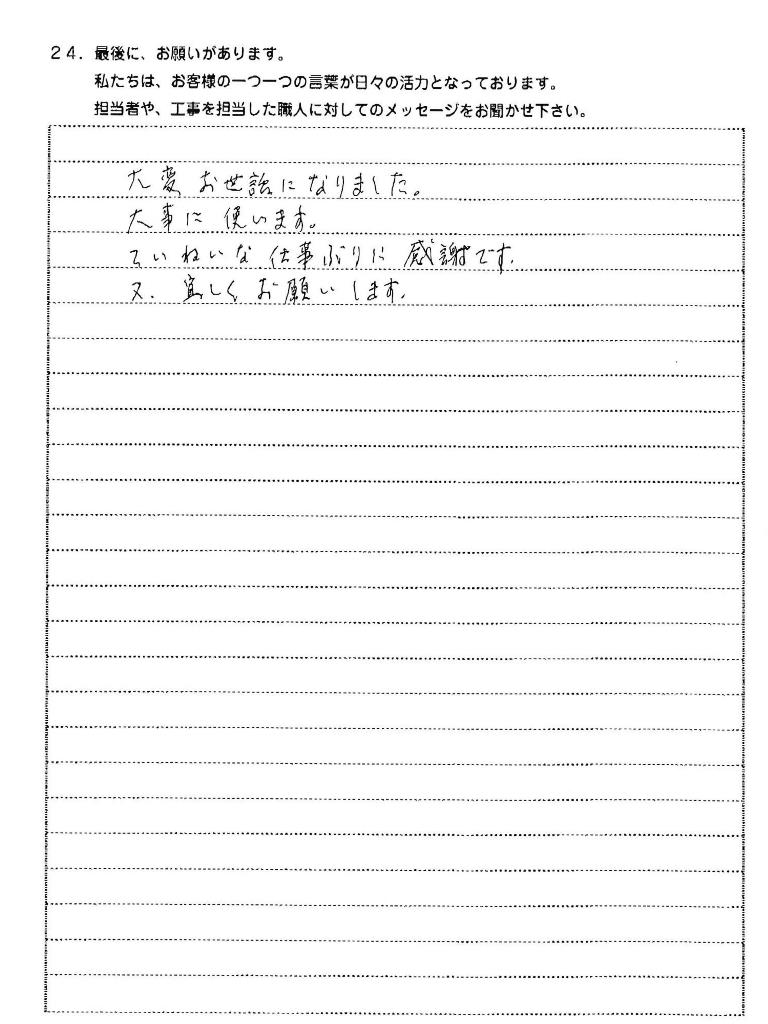 24. 最後に、お願いがあります。
私たちは、お客様の一つ一つの言葉が日々の活力となっております。
担当者や、工事を担当した職人に対してのメッセージをお聞かせ下さい。
大変 お世話になりました。
大事に 使います。
ていねいな 仕事ぶりに 感謝です.
又. 宜しく お願いします.